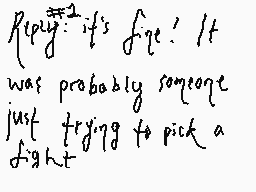 Reply #1: it's fine! It
was probably someone
just trying to pick a
fight